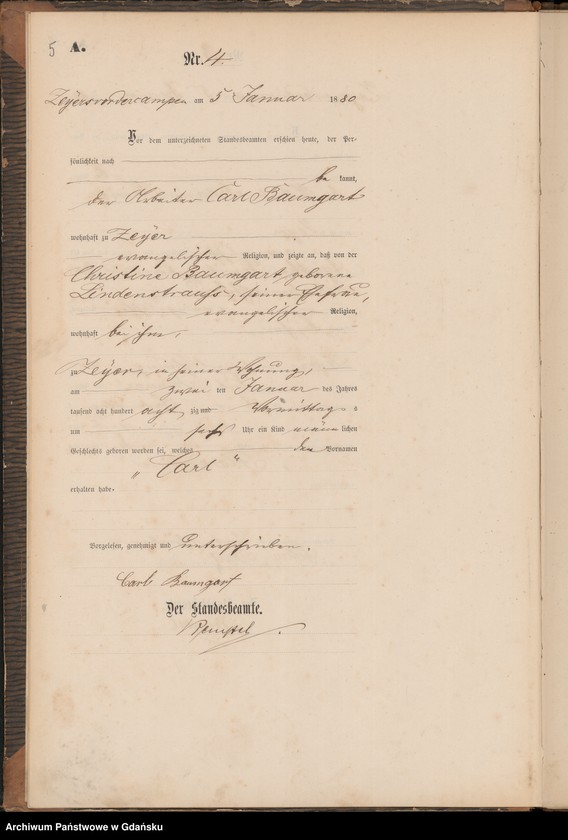 5 A.
Nr. 4.
Zeyersvordercampen am 5 Januar 1880
Vor dem unterzeichneten Standesbeamten erschien heute, der Per-
sönlichkeit nach
be kannt,
der Arbeiter Carl Baumgart
wohnhaft zu Zeyer
evangelischer Religion, und zeigte an, daß von der
Christine Baumgart, geborene
Lindenstrauss, seiner Ehefrau,
evangelischer Religion,
wohnhaft bei ihm,
zu Zeyer, in seiner Wohnung,
am zwei ten Januar des Jahres
tausend acht hundert acht zig und Vormittag s
um sechs Uhr ein Kind männ lichen
Geschlechts geboren worden sei, welches den Vornamen
„Carl“
erhalten habe.
Vorgelesen, genehmigt und unterschrieben.
Carl Baumgart
Der Standesbeamte.
Archiwum Państwowe w Gdańsku